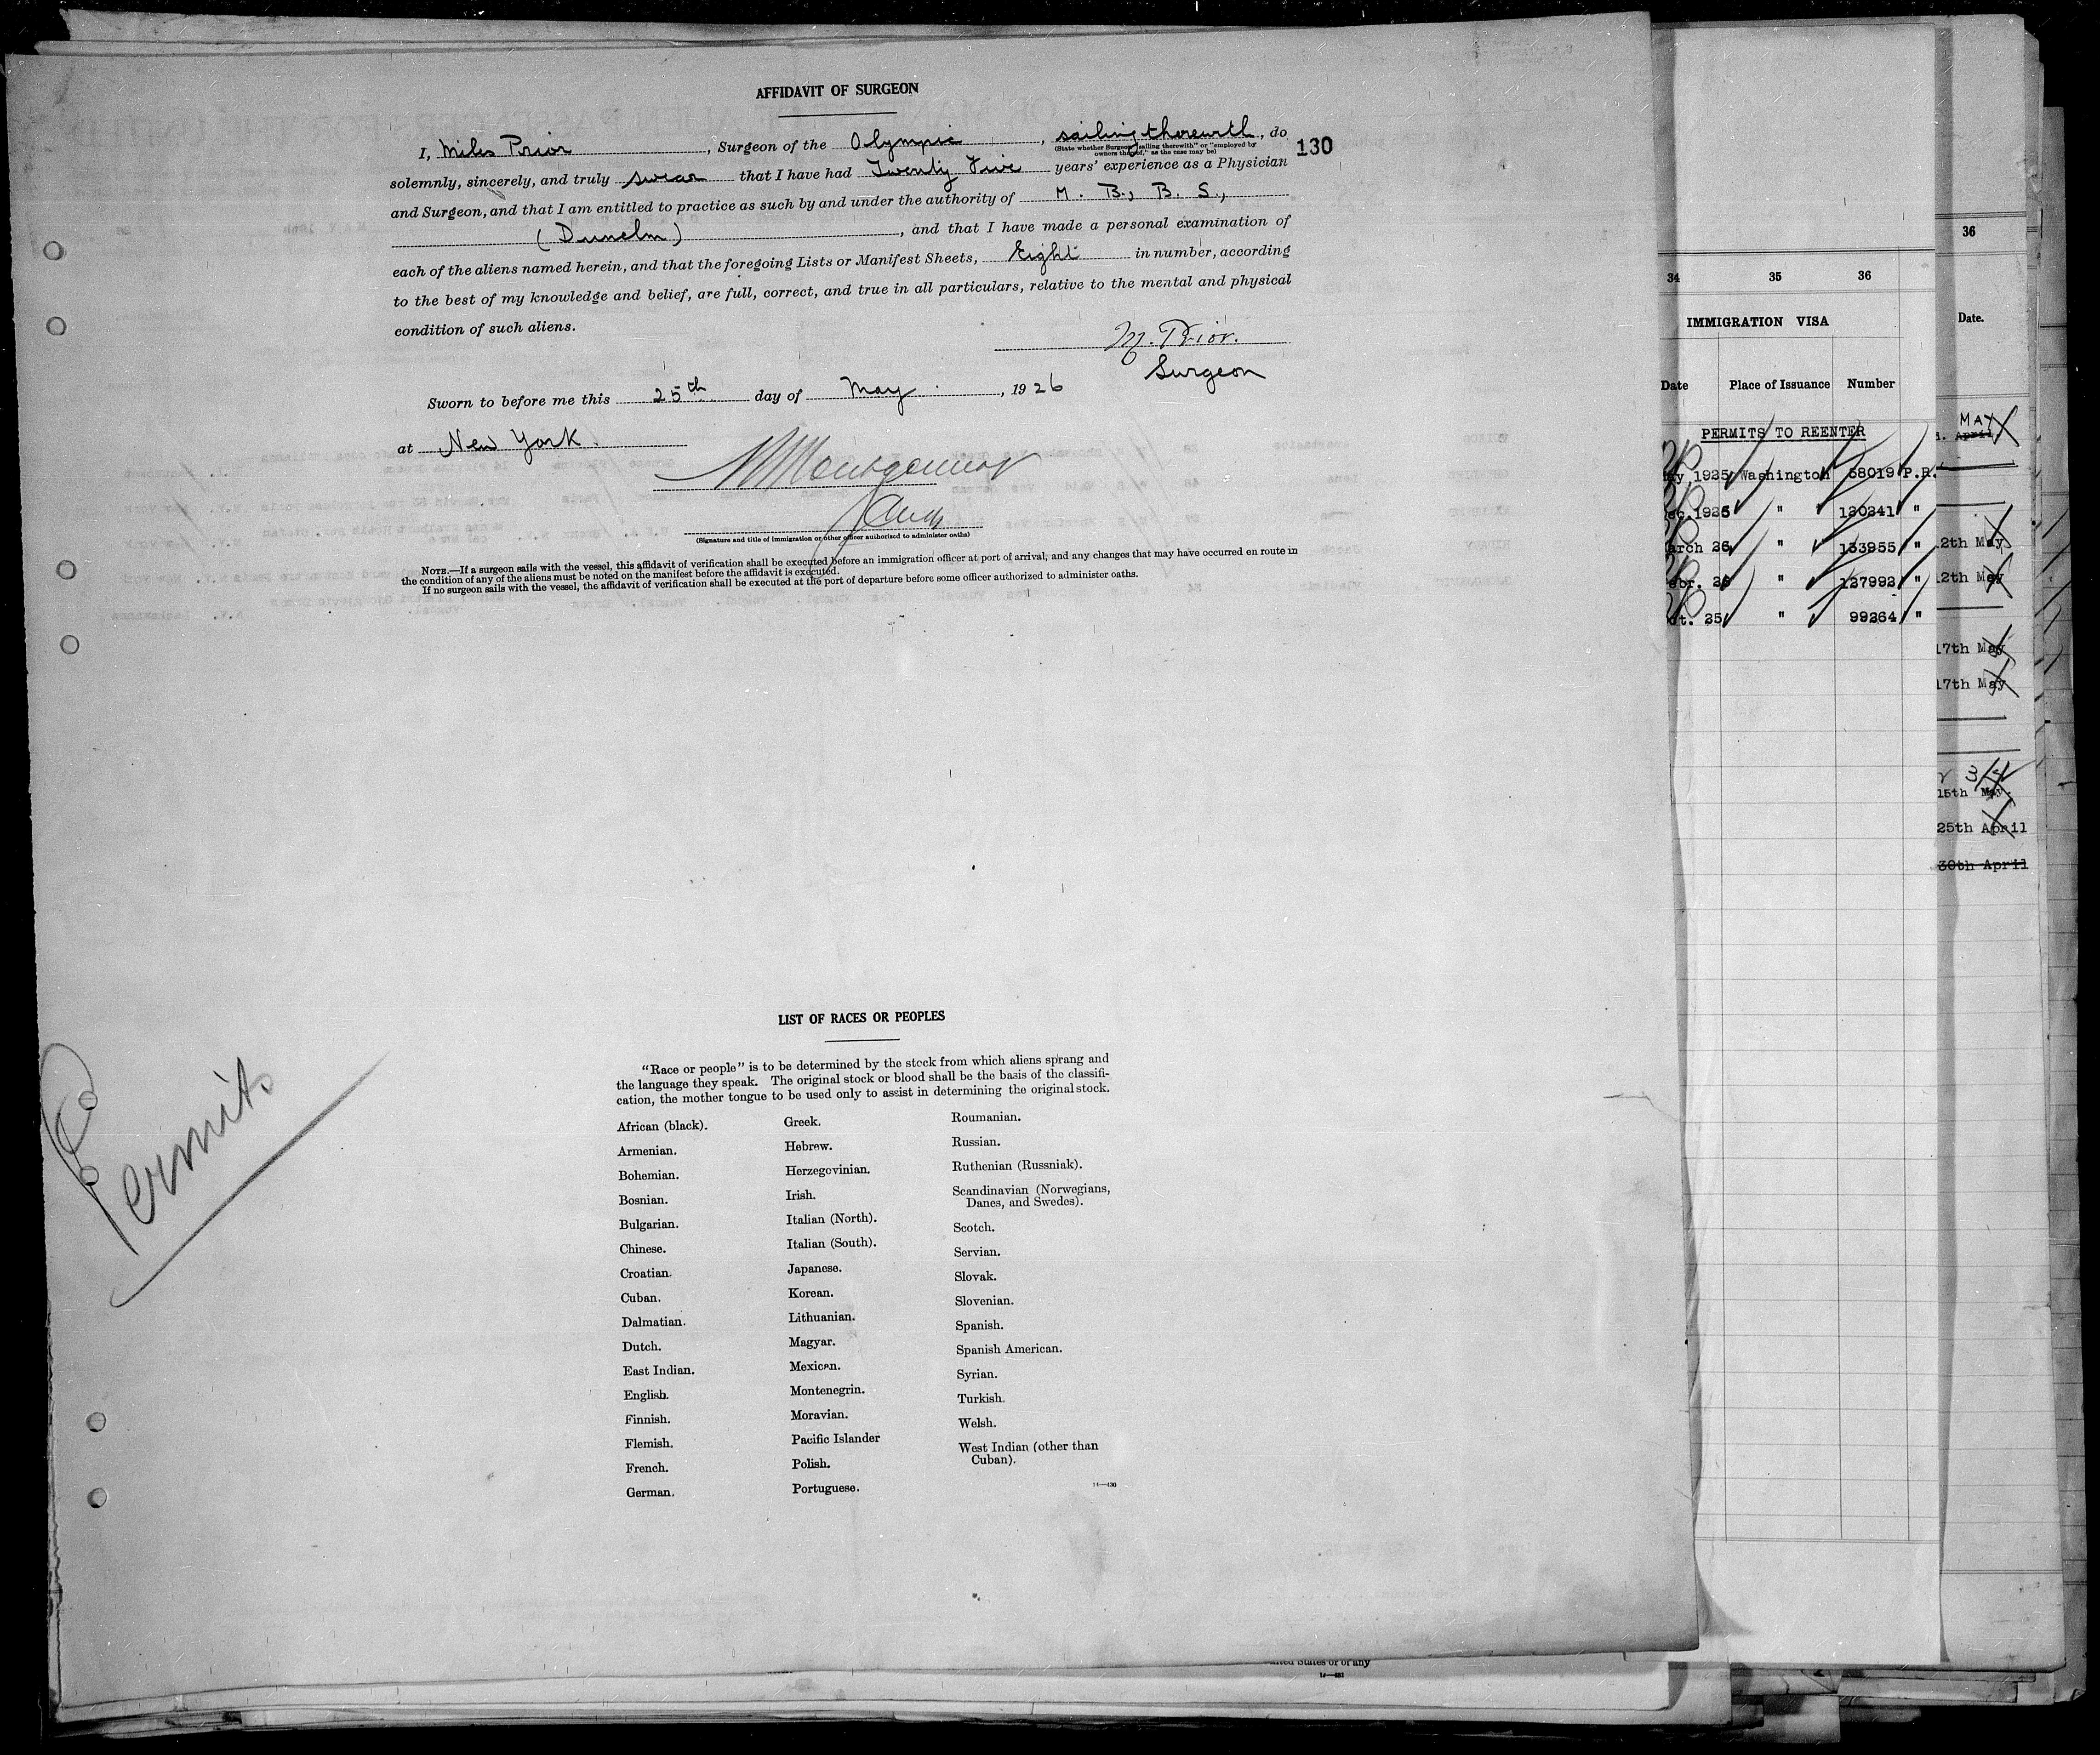 AFFIDAVIT OF SURGEON
I, Miles Prior, Surgeon of the Olympic, sailing therewith, do
(State whether Surgeon "sailing therewith" or "employed by
owners thereof," as the case may be)
130
solemnly, sincerely, and truly swear that I have had Twenty Five years' experience as a Physician
and Surgeon, and that I am entitled to practice as such by and under the authority of M. B., B. S.,
(Dunelm), and that I have made a personal examination of
each of the aliens named herein, and that the foregoing Lists or Manifest Sheets, Eight in number, according
to the best of my knowledge and belief, are full, correct, and true in all particulars, relative to the mental and physical
condition of such aliens.
M. Prior.
Surgeon
Sworn to before me this 25th day of May, 1926
at New York.
Montgomery
(Signature and title of immigration or other officer authorized to administer oaths)
NOTE.—If a surgeon sails with the vessel, this affidavit of verification shall be executed before an immigration officer at port of arrival, and any changes that may have occurred en route in
the condition of any of the aliens must be noted on the manifest before the affidavit is executed.
If no surgeon sails with the vessel, the affidavit of verification shall be executed at the port of departure before some officer authorized to administer oaths.
Permits
LIST OF RACES OR PEOPLES
"Race or people" is to be determined by the stock from which aliens sprang and
the language they speak. The original stock or blood shall be the basis of the classifi-
cation, the mother tongue to be used only to assist in determining the original stock.
African (black).
Armenian.
Bohemian.
Bosnian.
Bulgarian.
Chinese.
Croatian.
Cuban.
Dalmatian.
Dutch.
East Indian.
English.
Finnish.
Flemish.
French.
German.
Greek.
Hebrew.
Herzegovinian.
Irish.
Italian (North).
Italian (South).
Japanese.
Korean.
Lithuanian.
Magyar.
Mexican.
Montenegrin.
Moravian.
Pacific Islander
Polish.
Portuguese.
Roumanian.
Russian.
Ruthenian (Russniak).
Scandinavian (Norwegians,
Danes, and Swedes).
Scotch.
Servian.
Slovak.
Slovenian.
Spanish.
Spanish American.
Syrian.
Turkish.
Welsh.
West Indian (other than
Cuban).
14—430
34 35 36
IMMIGRATION VISA
Date Place of Issuance Number
PERMITS TO REENTER
1925 Washington 58019 P.R.
1925 " 120341 "
arch 26 " 133955 "
ebr. 26 " 127992 "
ct. 25 " 99264 "
36
Date.
MAY
April
2th May
2th May
17th May
17th May
15th May.
25th April
30th April
ited States or of any